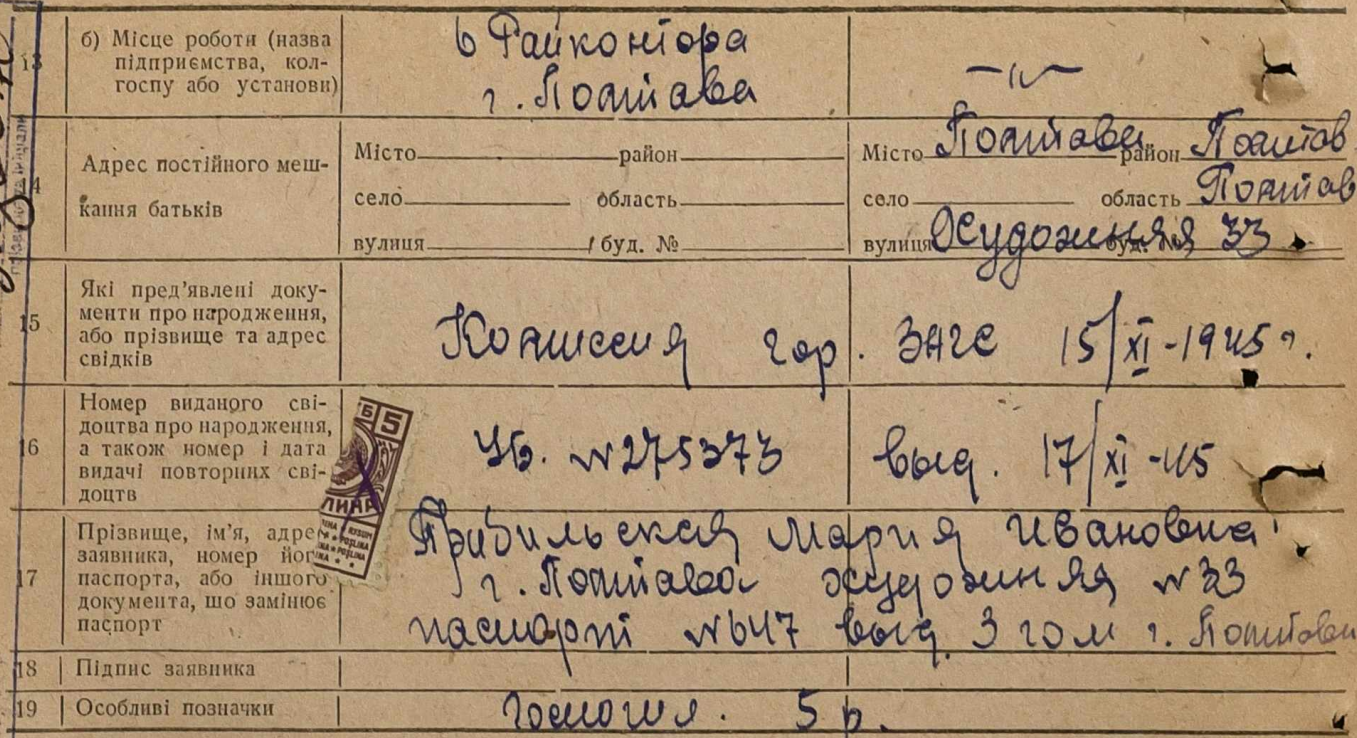 13 б) Місце роботи (назва підприємства, кол-госпу або установи)
в Райконтора
г. Полтава
—"—
14 Адрес постійного меш-кання батьків
Місто район
село область
вулиця буд. №
Місто Полтава район Полтав
село область Полтав
вулиця буд. № 33
15 Які пред'явлені доку-
менти про народження,
або прізвище та адрес
свідків
Комиссия гор. ЗАГС 15/XI-1945 г.
16 Номер виданого сві-
доцтва про народження,
а також номер і дата
видачі повторних сві-
доцтв
УБ. №275373 выд. 17/XI-45
5
17 Прізвище, ім'я, адрес
заявника, номер його
паспорта, або іншого
документа, що замінює
паспорт
Прибильская Мария Ивановна
г. Полтава №33
паспорт № 647 выд. 3 гом г. Полтави
18 Підпис заявника
19 Особливі позначки
5 р.